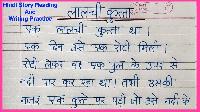 Hindi Story Reading
And
Writing Practice
लालची कुत्ता
एक लालची कुत्ता था ।
एक दिन उसे एक रोटी मिली ।
रोटी लेकर वह एक पुल के ऊपर से
नदी पार कर रहा था। तभी उसकी
नजर एक कुत्ते पर पड़ी जो उसे नदी के